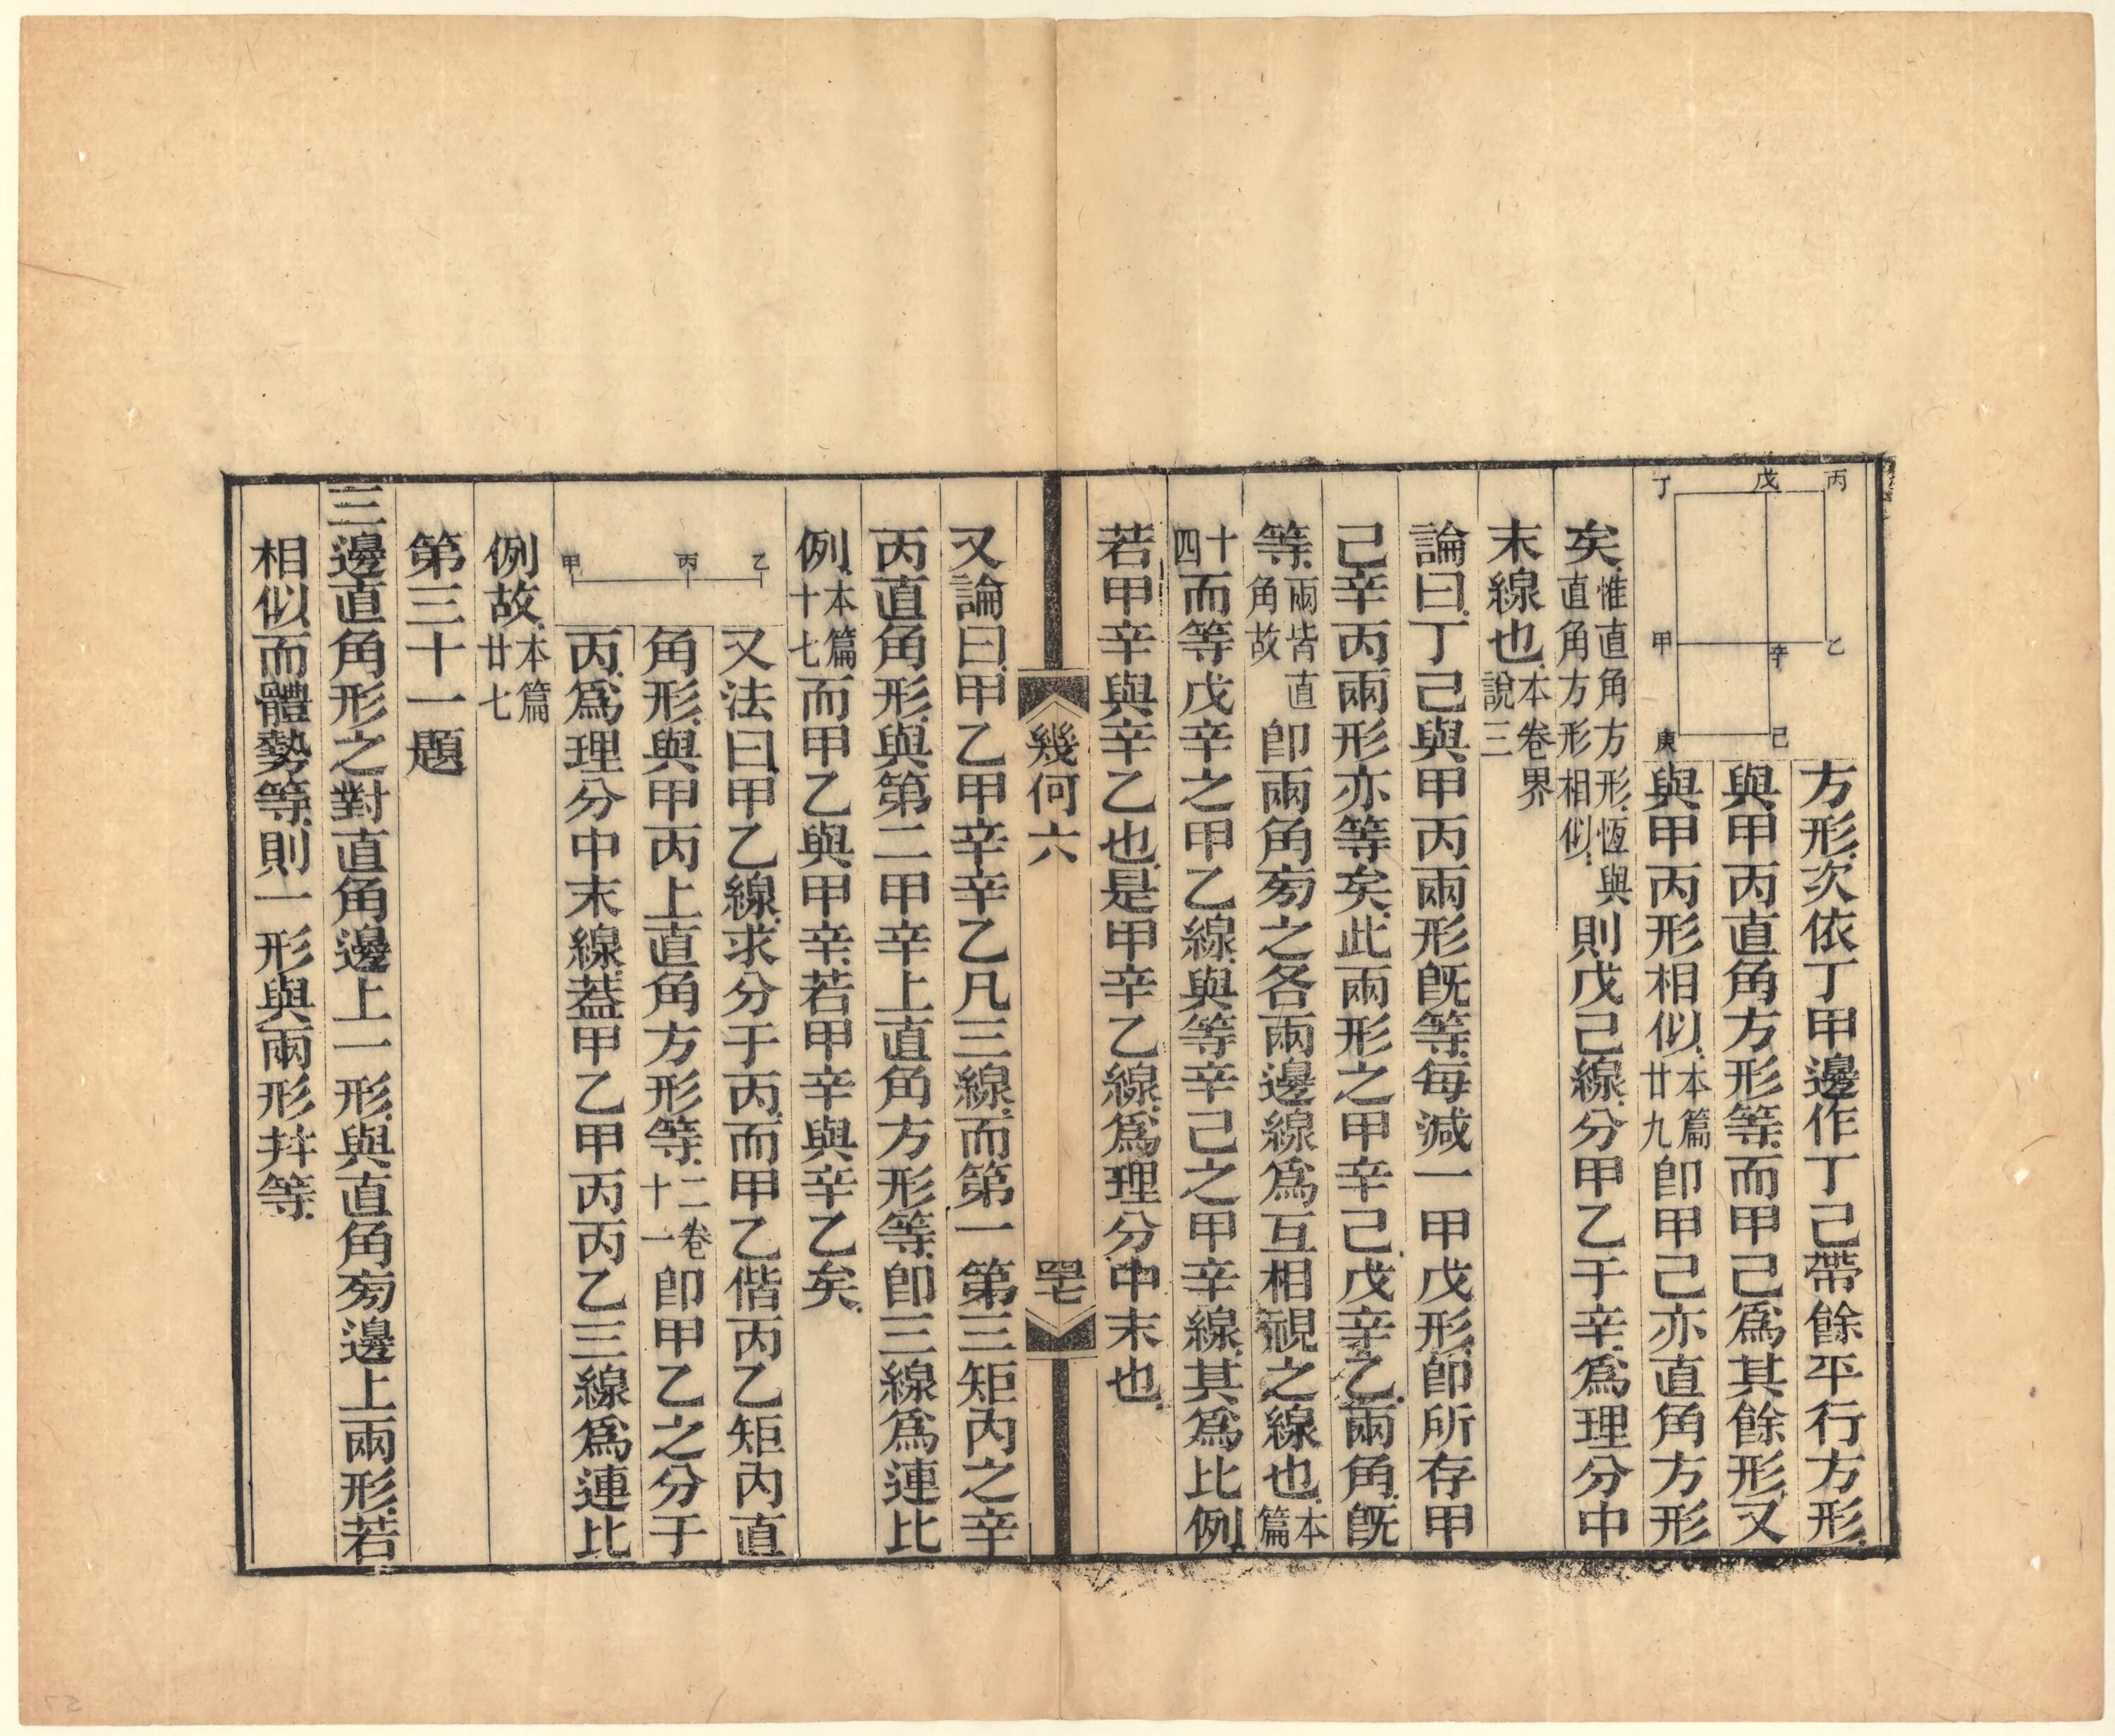 丙
戊
丁
乙
辛
甲
己
庚
方形次依丁甲邊作丁己帶餘平行方形
與甲丙直角方形等而甲己爲其餘形又
與甲丙形相似本篇廿九卽甲己亦直角方形
矣惟直角方形恆與直角方形相似則戊己線分甲乙于辛爲理分中
末線也本卷界說三
論曰丁己與甲丙兩形旣等每減一甲戊形卽所存甲
己辛丙兩形亦等矣此兩形之甲辛己戊辛乙兩角旣
等兩皆直角故卽兩角旁之各兩邊線爲互相視之線也本篇
十四而等戊辛之甲乙線與等辛己之甲辛線其爲比例
若甲辛與辛乙也是甲辛乙線爲理分中末也
幾何六
罕七
又論曰甲乙甲辛辛乙凡三線而第一第三矩內之辛
丙直角形與第二甲辛上直角方形等卽三線爲連比
例本篇十七而甲乙與甲辛若甲辛與辛乙矣
乙
丙
甲
又法曰甲乙線求分于丙而甲乙偕丙乙矩內直
角形與甲丙上直角方形等二卷十一卽甲乙之分于
丙爲理分中末線蓋甲乙甲丙丙乙三線爲連比
例故本篇廿七
第三十一題
三邊直角形之對直角邊上一形與直角旁邊上兩形若
相似而體勢等則一形與兩形幷等